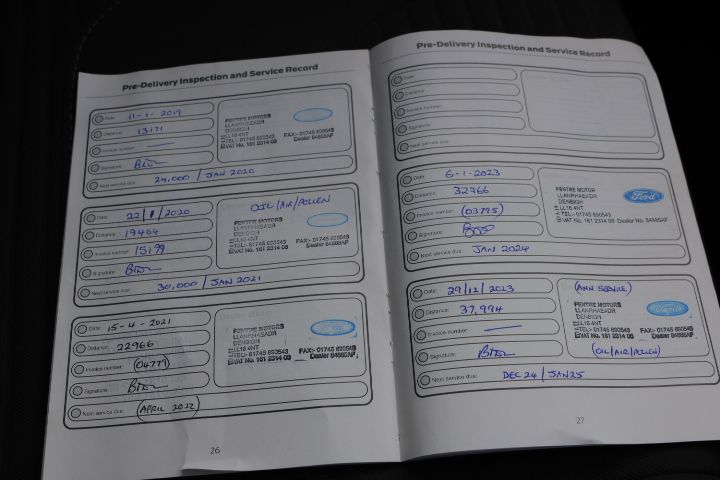 Pre-Delivery Inspection and Service Record
Date: 11-1-2019
Distance: 13171
Invoice number: —
Signature:
Next service due: 24,000 / JAN 2020
PENTRE MOTORS
LLANRHAEADR
DENBIGH
LL16 4NT
TEL:- 01745 890543 FAX:- 01745 890545
VAT No. 161 2314 08 Dealer 84885AF
Date: 22/1/2020
OIL/AIR/POLLEN
Distance: 19404
Invoice number: 15199
Signature:
Next service due: 30,000 / JAN 2021
PENTRE MOTORS
LLANRHAEADR
DENBIGH
LL16 4NT
TEL:- 01745 890543 FAX:- 01745 890545
VAT No. 161 2314 08 Dealer 84885AF
Date: 15-4-2021
Distance: 22966
Invoice number: (04779)
Signature:
Next service due: (APRIL 2022)
PENTRE MOTORS
LLANRHAEADR
DENBIGH
LL16 4NT
TEL:- 01745 890543 FAX:- 01745 890545
VAT No. 161 2314 08 Dealer 84885AF
26
Pre-Delivery Inspection and Service Record
Date:
Distance:
Invoice number:
Signature:
Next service due:
Date: 6-1-2023
Distance: 32766
Invoice number: (03795)
Signature:
Next service due: JAN 2024
PENTRE MOTOR
LLANRHAEADR
DENBIGH
LL16 4NT
TEL:- 01745 890543
VAT No. 161 2314 08 Dealer No 84885AF
Ford
Date: 29/12/2023
(ANN SERVICE)
Distance: 37,994
Invoice number: —
Signature:
Next service due: DEC 24 / JAN 25
PENTRE MOTORS
LLANRHAEADR
DENBIGH
LL16 4NT
TEL:- 01745 890543 FAX:- 01745 890545
VAT No. 161 2314 08 Dealer 84885AF
(OIL/AIR/POLLEN)
27